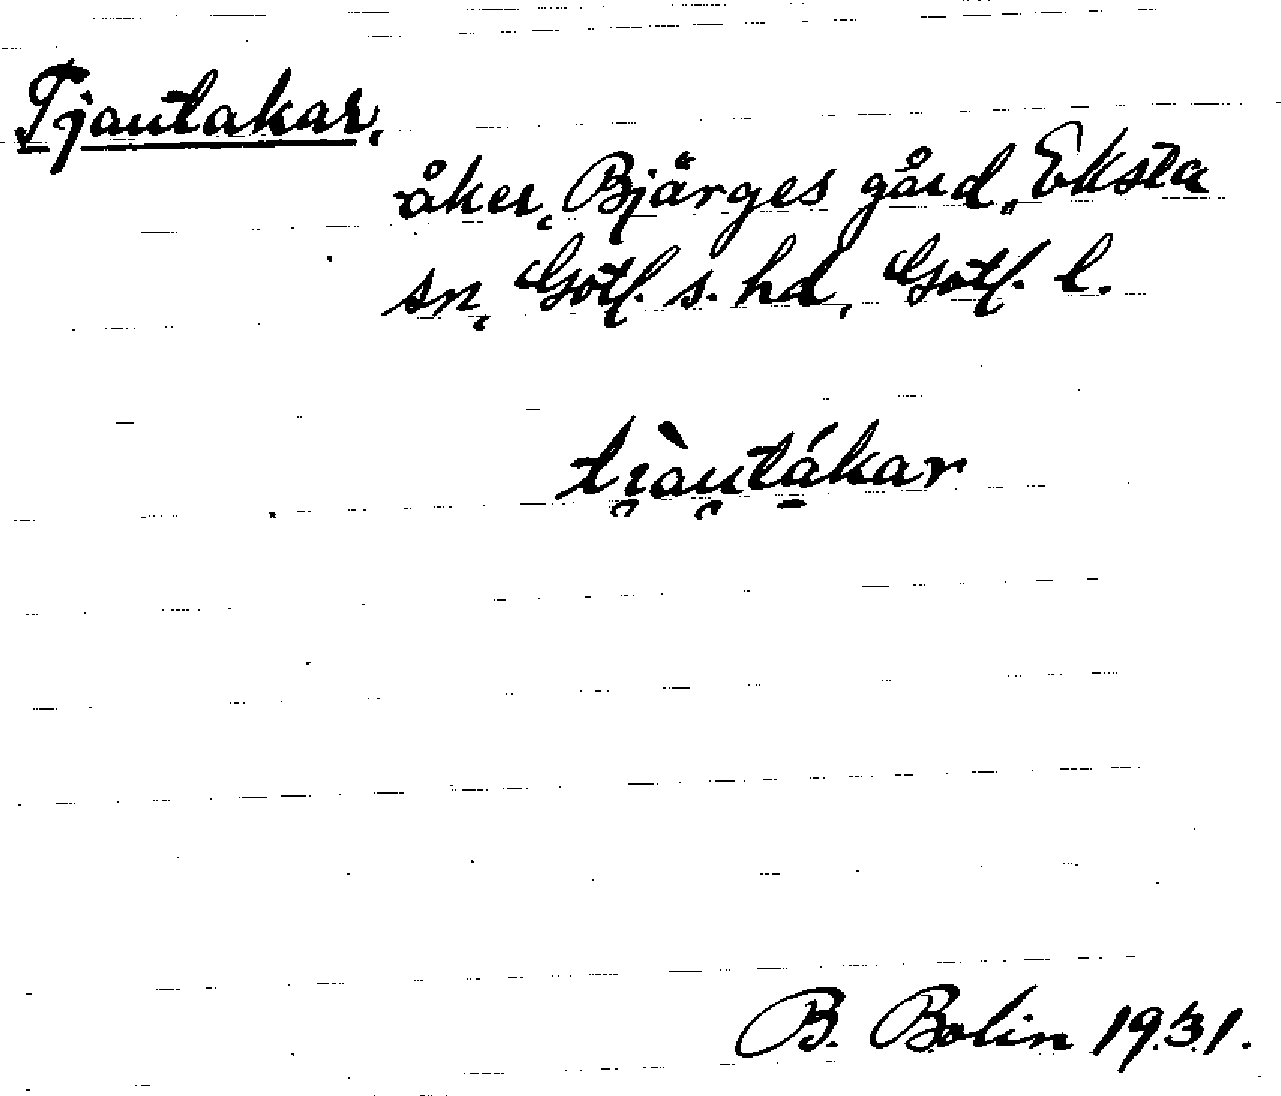 Tjautakar,
åker, Bjärges gård, Eksta
sn, Gotl. s. hd, Gotl. l.
ti̯àu̯tá̱kar
B. Bolin 1931.